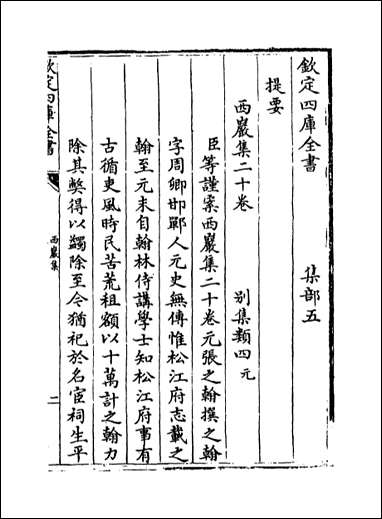 欽定四庫全書　集部五
提要
西巖集二十卷　別集類四元
臣等謹案西巖集二十卷元張之翰撰之翰
字周卿邯鄲人元史無傳惟松江府志載之
翰至元末自翰林侍講學士知松江府事有
古循吏風時民苦荒租額以十萬計之翰力
除其弊得以蠲除至今猶祀於名宦祠生平
欽定四庫全書
西巖集